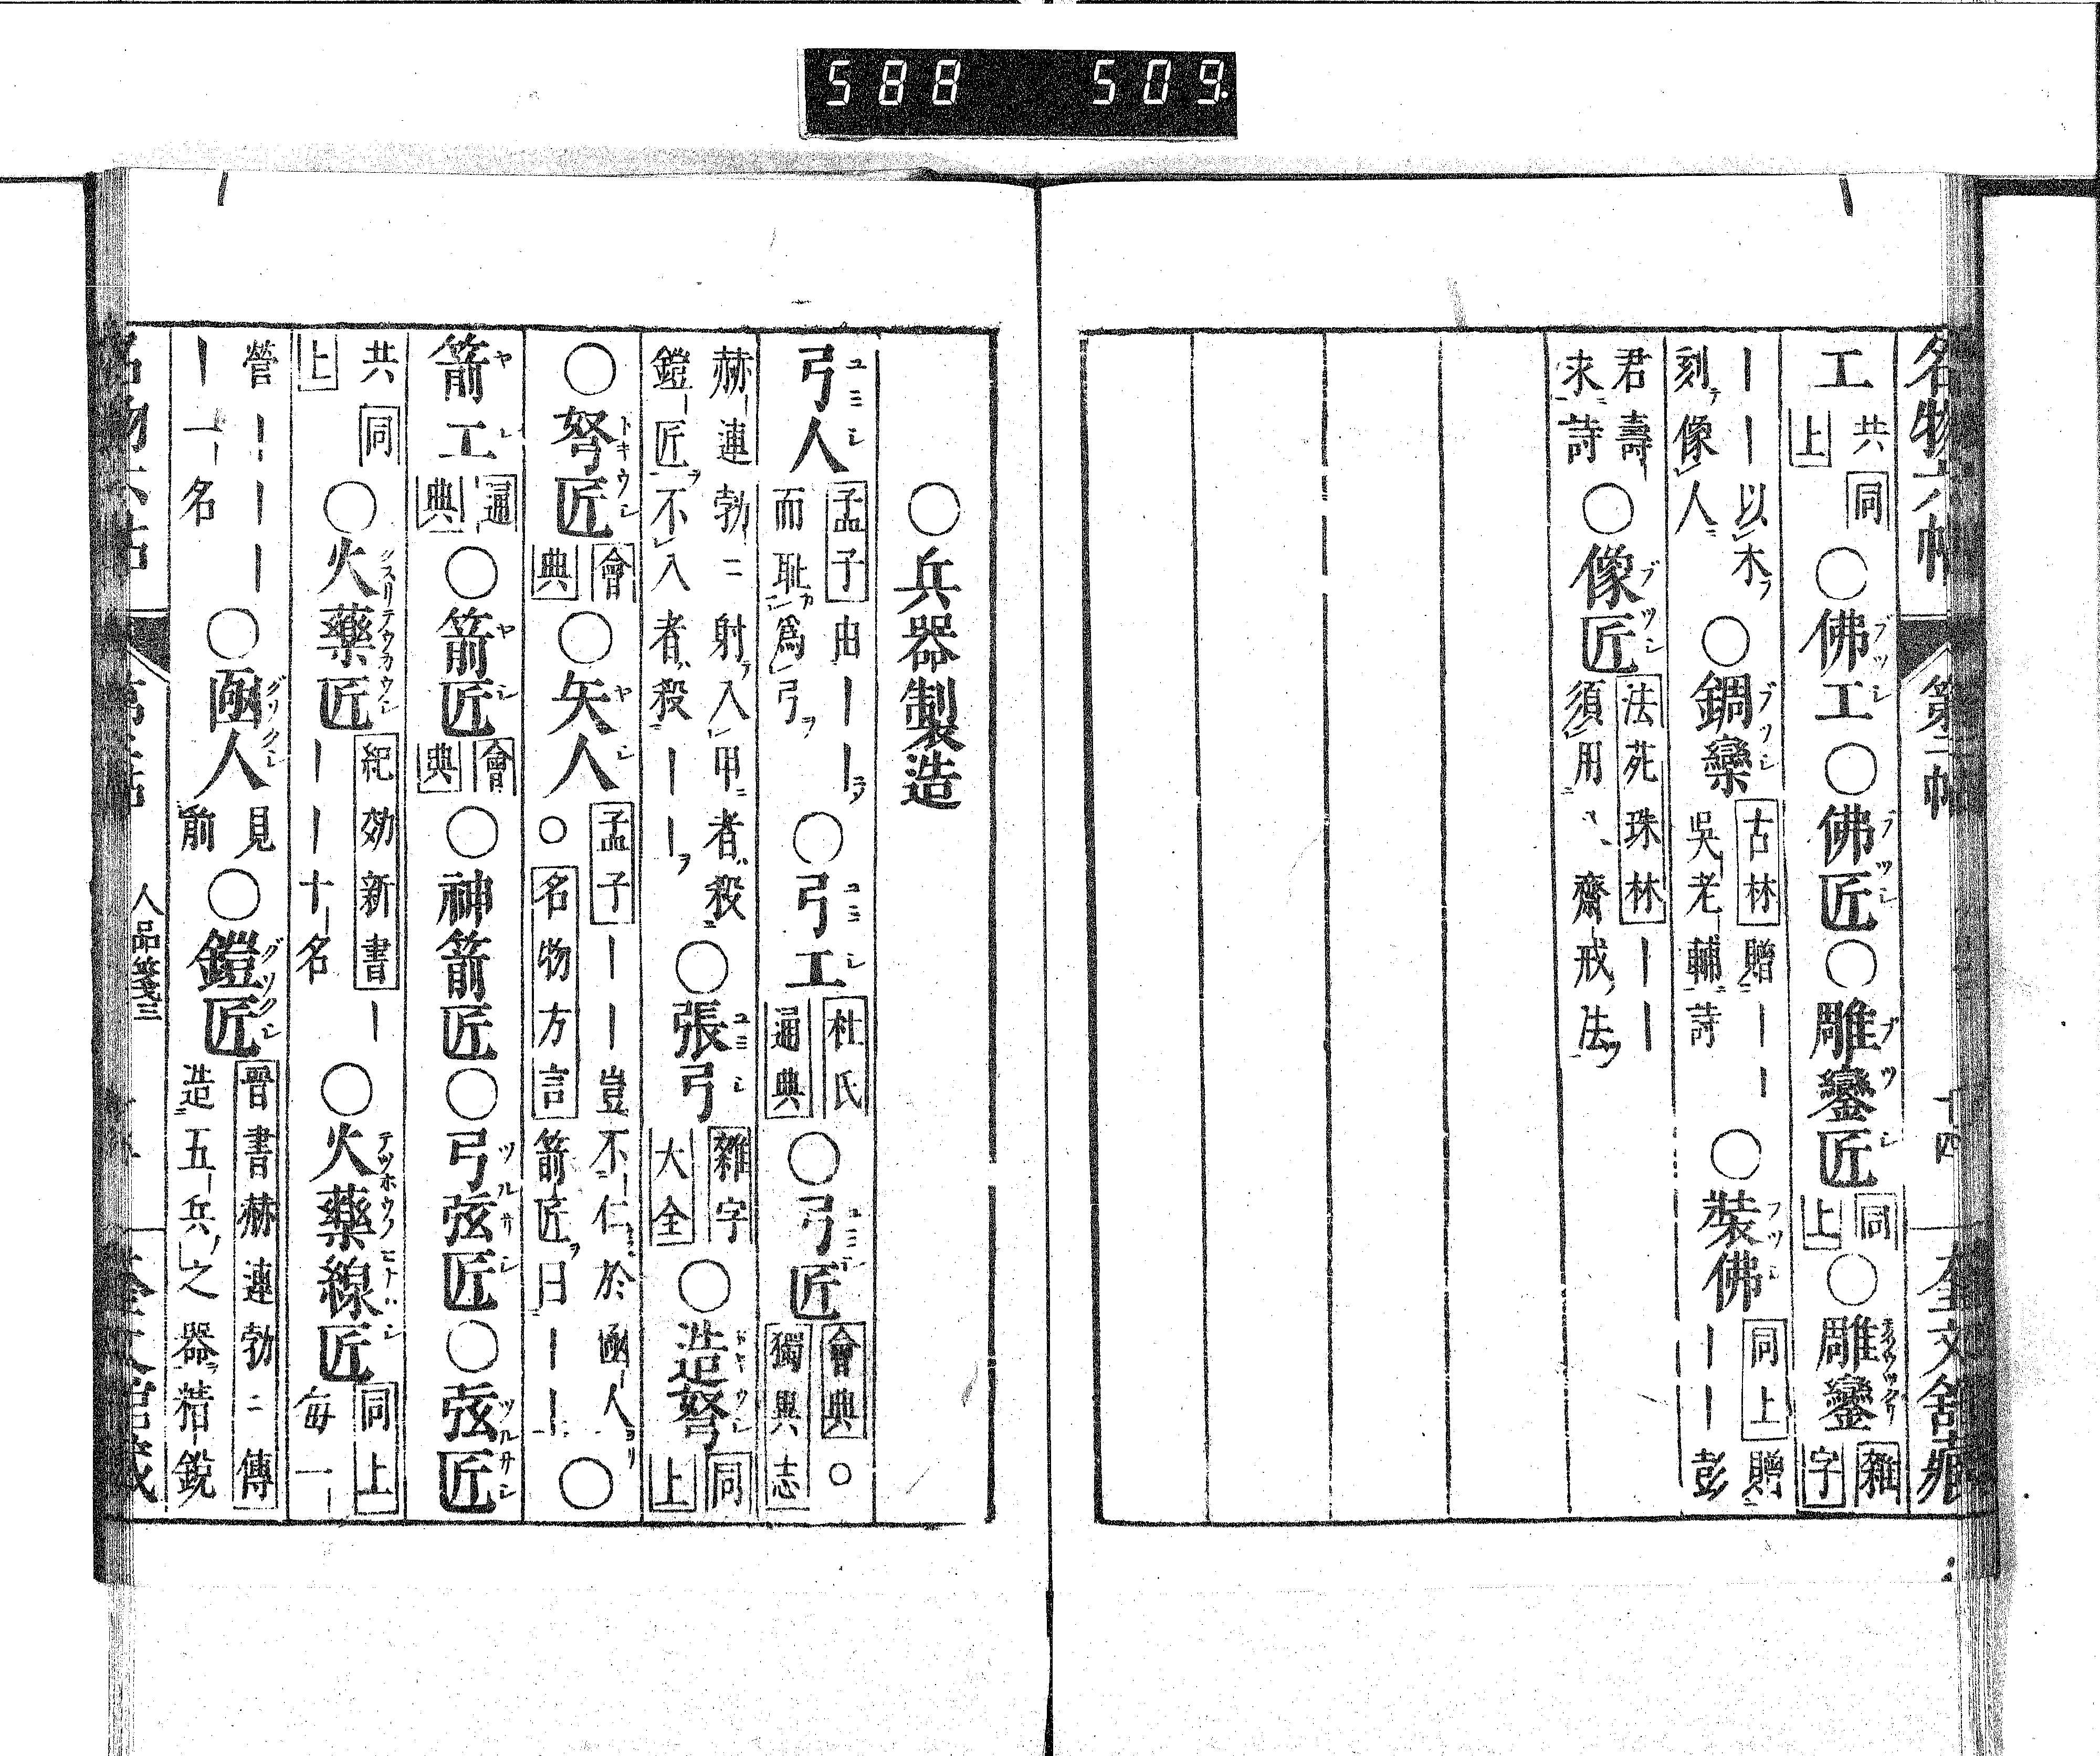 588 509.
名物六帖 第二帖 十四 奎文舘藏
工 共同上 ○佛工 ○佛匠 ○雕鑾匠 同上 ○雕鑾 雜字
｜｜以木刻像人 ○鋼欒 古林贈｜｜｜吳老輔詩 ○裝佛 同上 贈｜｜彭
君壽求詩 ○像匠 法苑珠林｜｜須用齋戒法
○兵器製造
弓人 孟子 由｜｜而耻爲弓 ○弓工 杜氏通典 ○弓匠 會典○獨異志
赫連勃勃射入甲者殺鎧匠不入者殺｜｜ ○張弓 雜字大全 ○造弩 同上
○弩匠 會典 ○矢人 孟子｜｜豈不仁於凾人○名物方言 箭匠曰｜｜ ○
箭工 通典 ○箭匠 會典 ○神箭匠 ○弓弦匠 ○弦匠
共同上 ○火藥匠 紀効新書｜｜｜十名 ○火藥線匠 同上 每一
營｜｜｜｜一名 ○凾人 見前 ○鎧匠 晉書赫連勃勃傳 造五兵之器精銳
人品箋三